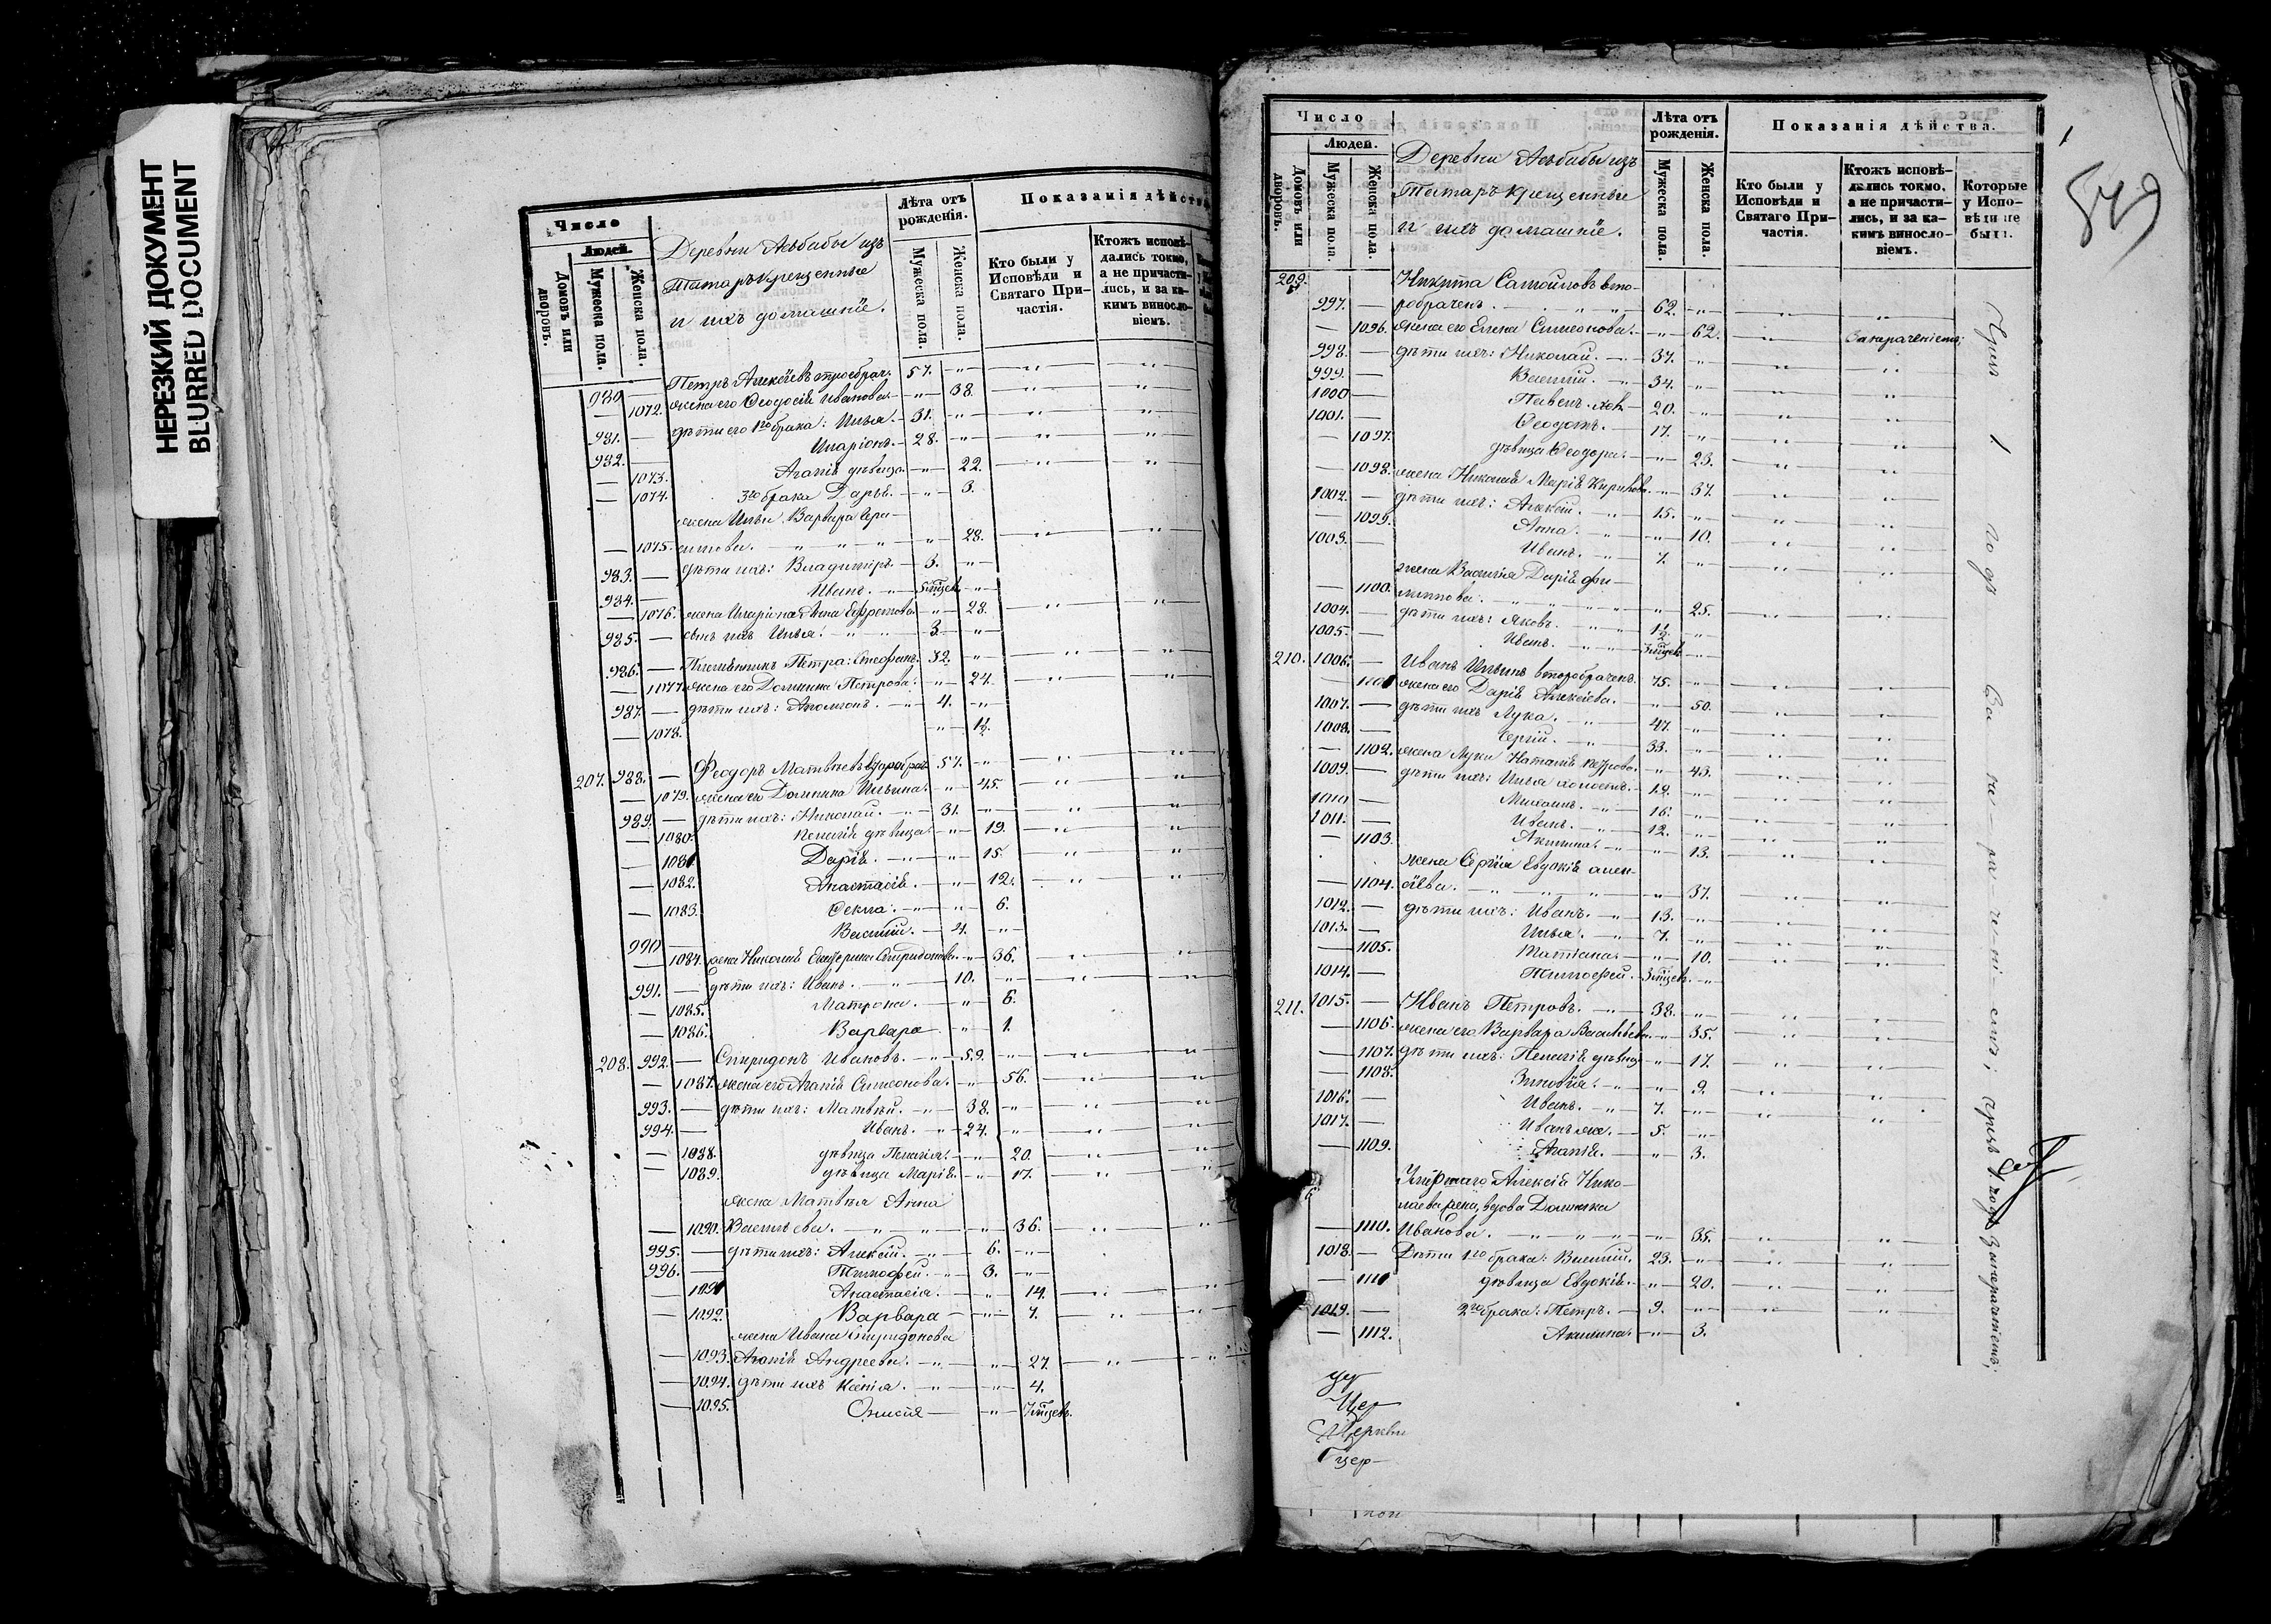 НЕРЕЗКИЙ ДОКУМЕНТ
BLURRED DOCUMENT
Число
Людей.
Домовъ или дворовъ.
Мужеска пола.
Женска пола.
Деревни Азъбабы изъ
Татаръ крещенные
и ихъ домашнiе.
Лѣта отъ рожденiя.
Мужеска пола.
Женска пола.
Показанiя дѣйств
Кто были у Исповѣди и Святаго При-частiя.
Ктожъ исповѣ-дались токмо, а не причасти-лись, и за ка-кимъ винosло-вiемъ.
980 — Петръ Алексѣевъ троебрач. 57. —"—
— 1072. жена его Ѳеодосiя Иванова. —"— 38.
981. — дѣти его 1го брака: Илья. — 31. —"—
982. — Иларiонъ. — 28. —"—
— 1073. Агапiя дѣвица. —"— 22.
— 1074. 3го брака Дарья. —"— 3.
жена Ильи Варвара Гера-
— 1075. симова. —"— 28.
983. — дѣти ихъ: Владимiръ — 3. —"—
984. — Иванъ. —"— 5 мѣсец. —"—
— 1076. жена Иларiона Анна Ефремова. —"— 28.
985. — сынъ ихъ Илья. —"— 3. —"—
986. — Племянникъ Петра: Стефанъ. 32. —"—
— 1077. жена его Домникиа Петрова. —"— 24.
987. — дѣти ихъ: —"— 4. —"—
— 1078. —"— 1½.
207. 988. — Ѳеодоръ Матвѣевъ второбрач. 57. —"—
— 1079. жена его Домникиа Ильина. —"— 45.
989. — дѣти ихъ: Николай. —"— 31. —"—
— 1080. Пелагiя дѣвица. —"— 19.
— 1081. Дарiя. —"— 15.
— 1082. Анастасiя. —"— 12.
— 1083. Ѳекла. —"— 6.
990 — Василiй. —"— 4. —"—
— 1084. жена Николая Екатерина Спиридонова. —"— 36.
991. — дѣти ихъ: Иванъ. —"— 10. —"—
— 1085. Матрона. —"— 6.
— 1086. Варвара —"— 1.
208. 992. — Спиридонъ Ивановъ. —"— 59. —"—
— 1087. жена его Агапiя Симеонова. —"— 56.
993. — дѣти ихъ: Матвѣй. —"— 38. —"—
994. — Иванъ. —"— 24. —"—
— 1088. дѣвица Пелагiя. —"— 20.
— 1089. дѣвица Марiя. —"— 17.
жена Матвѣя Анна
— 1090. Васильева. —"— 36.
995. — дѣти ихъ: Алексѣй. —"— 6. —"—
996. — Тимофей. —"— 3. —"—
— 1091 Анастасiя. —"— 14.
— 1092. Варвара —"— 7.
жена Ивана Спиридонова
— 1093. Агапiя Андреева. —"— 27.
— 1094. дѣти ихъ Ксенiя. —"— 4.
— 1095. Онисiя —"— 7 мѣсев.
Число
Людей.
Домовъ или дворовъ.
Мужеска пола.
Женска пола.
Деревни Азъбабы изъ
Татаръ крещенные
и ихъ домашнiе.
Лѣта отъ рожденiя.
Мужеска пола.
Женска пола.
Показанiя дѣйства.
Кто были у Исповѣди и Святаго При-частiя.
Ктожъ исповѣ-дались токмо, а не причасти-лись, и за ка-кимъ винosло-вiемъ.
Которые у Испо-вѣди не были.
549
209. Никита Самойловъ вто-
997. — робраченъ. —"— 62. —"—
— 1096. жена его Елена Симеонова. —"— 62. За нераченiемъ;
998. — дѣти ихъ: Николай. —"— 37. —"—
999. — Василiй. —"— 34. —"—
1000 — Павелъ. хол. 20. —"—
1001. — Ѳеодотъ. — 17. —"—
— 1097. дѣвица Ѳеодора. —"— 23.
— 1098. жена Николая Марiя Кирилова. —"— 37.
1002. — дѣти ихъ: Алексѣй. —"— 15. —"—
— 1099. Анна. —"— 10.
1003. — Иванъ. —"— 7. —"—
жена Василiя Дарiя Фи-
— 1100. липпова. —"— 25.
1004. — дѣти ихъ: Яковъ. —"— 1½. —"—
1005. — Иванъ. —"— 3 мѣсев. —"—
210. 1006. — Иванъ Ильинъ второбраченъ. 75. —"—
— 1101 жена его Дарiя Алексѣева. —"— 50.
1007. — дѣти ихъ Лука. —"— 47. —"—
1008. — Сергiй. —"— 33. —"—
— 1102. жена Луки Наталiя Петрова. —"— 43.
1009. — дѣти ихъ: Илья холостъ. — 19. —"—
1010 — Михаилъ. —"— 16. —"—
1011. — Иванъ. —"— 12. —"—
— 1103. Акилина. —"— 13.
жена Сергiя Евдокiя Алек-
— 1104. сѣева. —"— 37.
1012. — дѣти ихъ: Иванъ. —"— 13. —"—
1013. — Илья. —"— 7. —"—
— 1105. Татiана. —"— 10.
1014. — Тимофей. — 3 мѣсев. —"—
211. 1015. — Иванъ Петровъ. —"— 38. —"—
— 1106. жена его Варвара Васильева. —"— 35.
— 1107. дѣти ихъ: Пелагiя дѣвица —"— 17.
— 1108. Зиновiя. —"— 9.
1016. — Иванъ. —"— 7. —"—
1017. — Иванъ же. — 5. —"—
— 1109. Агапiя. —"— 3.
Умершаго Алексѣя Нико-
лаева жена, вдова Домника
— 1110. Иванова. —"— 35.
1018. — Дѣти 1го брака: Василiй. 23. —"—
— 1111 дѣвица Евдокiя. —"— 20.
1019. — 2го брака: Петръ. — 9. —"—
— 1112. Акилина. —"— 3.
Цер
Церкви
цер-